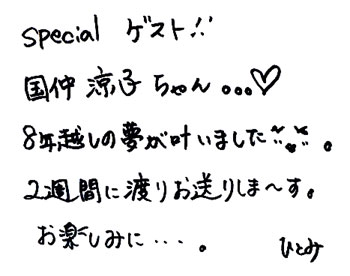 special ゲスト!!
国仲 涼子 ちゃん...♡
8年越しの夢が叶いました 。
2週間に渡りお送りしま〜す。
お楽しみに・・・。 ひとみ